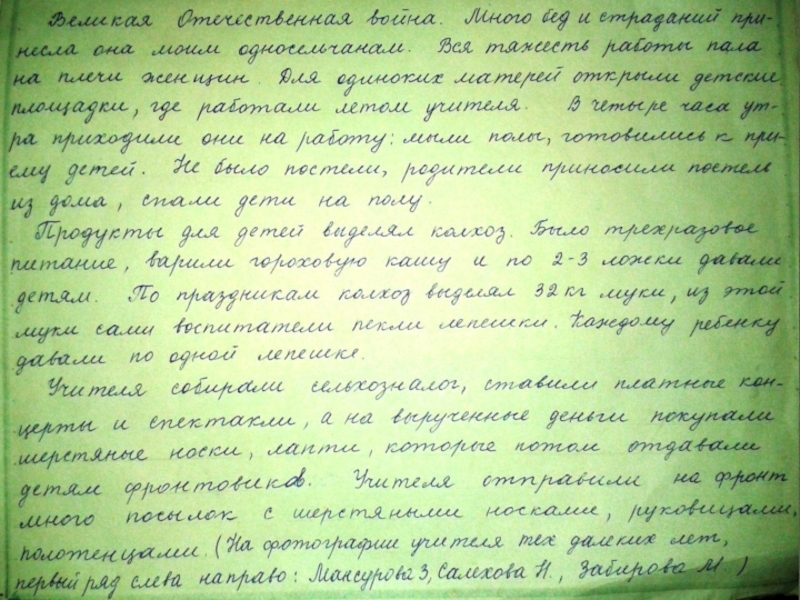 Великая Отечественная война. Много бед и страданий при-
несла она моим односельчанам. Вся тяжесть работы пала
на плечи женщин. Для одиноких матерей открыли детские
площадки, где работали летом учителя. В четыре часа ут-
ра приходили они на работу: мыли полы, готовились к при-
ему детей. Не было постели, родители приносили постель
из дома, спали дети на полу.
Продукты для детей выделял колхоз. Было трехразовое
питание, варили гороховую кашу и по 2-3 ложки давали
детям. По праздникам колхоз выделял 32 кг муки, из этой
муки сами воспитатели пекли лепешки. Каждому ребенку
давали по одной лепешке.
Учителя собирали сельхозналог, ставили платные кон-
церты и спектакли, а на вырученные деньги покупали
шерстяные носки, лапти, которые потом отдавали
детям фронтовиков. Учителя отправили на фронт
много посылок с шерстяными носками, руковицами,
полотенцами. (На фотографии учителя тех далеких лет,
первый ряд слева направо: Мансурова З, Салехова Н., Забирова М.)